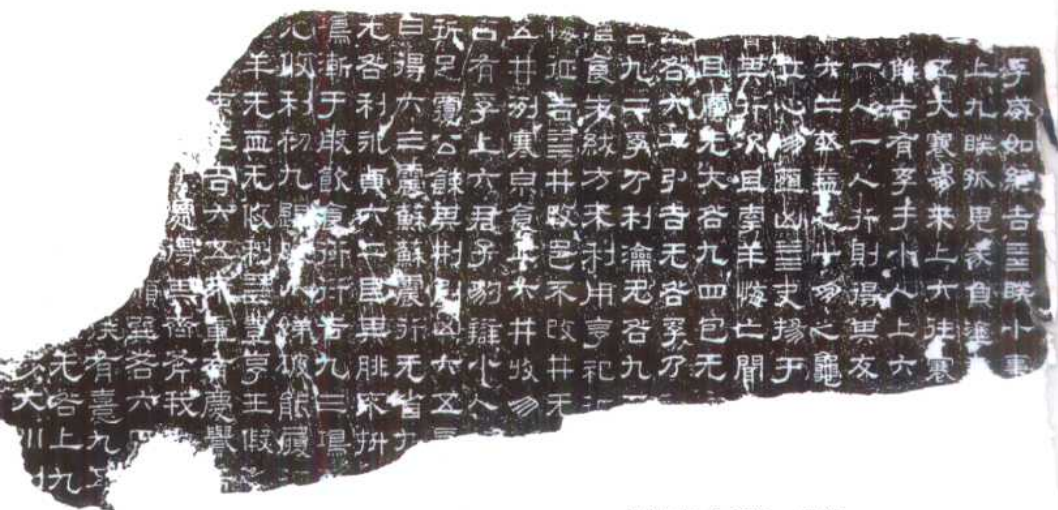 孚威如終吉䷥睽小事
上九睽孤見豕負塗
五大蹇朋來上六往蹇
解吉有孚于小人上六
一人一人行則得其友
六二或益之十朋之龜
立心勿恒凶䷪夬揚于
其行次且牽羊悔亡聞
且厲无大咎九四包无
咎六二引吉无咎孚乃
吉九二孚乃利瀹无咎九
酒食朱紱方來利用亨祀
悔征吉䷯井改邑不改井无
五井冽寒泉食上六井收勿
占有孚上六君子豹辯小人
折足覆公餗其刑剭凶六五
曰得六三震蘇蘇震行无省九
无咎利永貞六二艮其腓不拯
鴻漸于般飲食衎衎吉九三鴻
攸利初九歸妹以娣跛能履
羊无血无攸利䷶豐亨王假
吉六五來章有慶譽
處得其齊斧我
頻巽吝六四
疾有憙九五
无咎上九
大川利